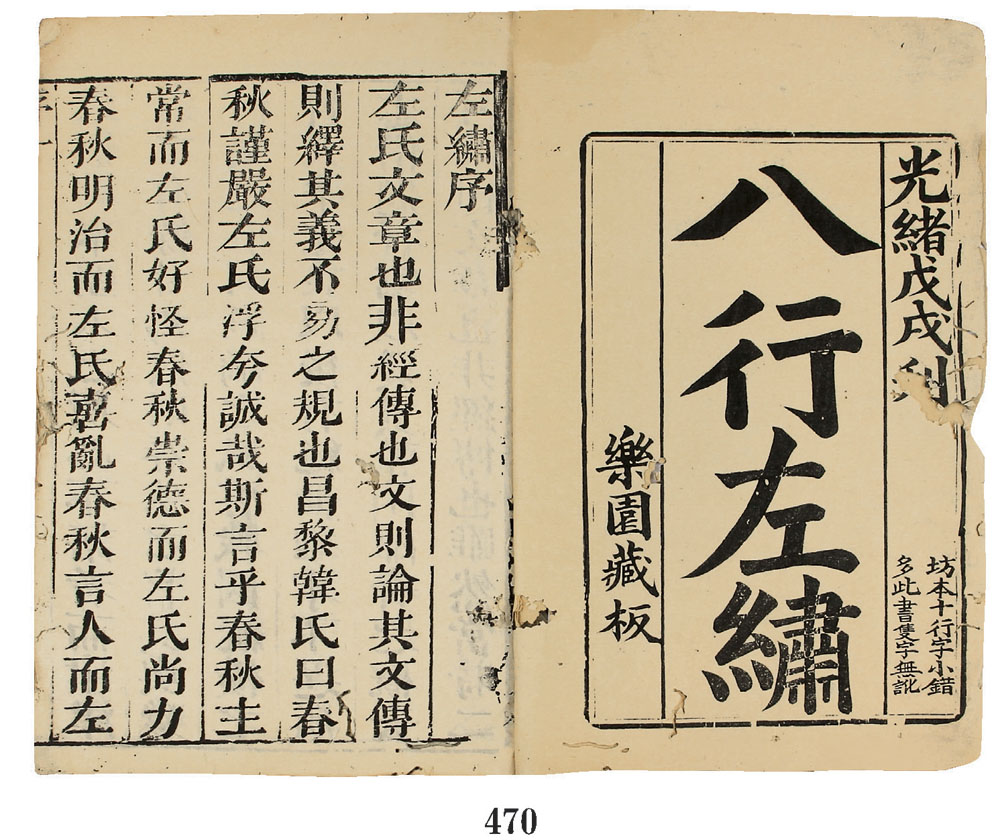 光緒戊戌刊
坊本十行字小錯
多此書隻字無訛
八行左繡
樂園藏板
左繡序
左氏文章也非經傳也文則論其文傳
則繹其義不易之規也昌黎韓氏曰春
秋謹嚴左氏浮夸誠哉斯言乎春秋主
常而左氏好怪春秋崇德而左氏尚力
春秋明治而左氏喜亂春秋言人而左
470